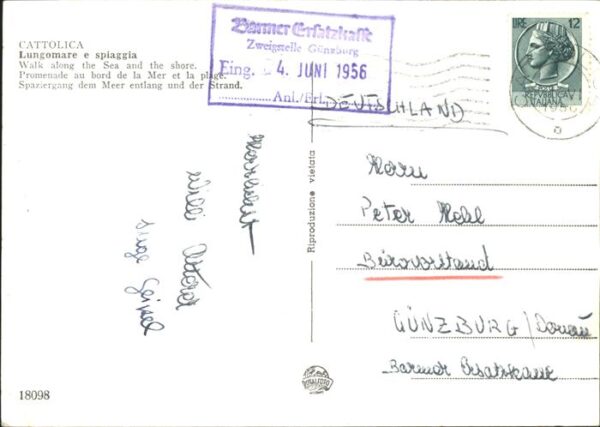 CATTOLICA
Lungomare e spiaggia
Walk along the Sea and the shore.
Promenade au bord de la Mer et la plage.
Spaziergang dem Meer entlang und der Strand.
Barmer Ersatzkasse
Zweigstelle Günzburg
Eing. 4. JUNI 1956
Anl./Erl.
LIRE 12
REPVBBLICA
ITALIANA
DEUTSCHLAND
Riproduzione vietata
Herrn
Peter
Bürovorstand
GÜNZBURG/Donau
Barmer Ersatzkasse
Willi
18098